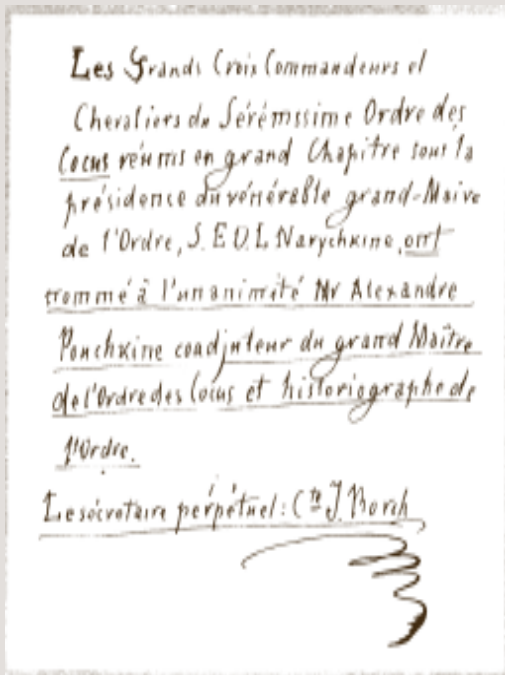 Les Grands Croix Commandeurs et
Chevaliers du Sérénissime Ordre des
Cocus réunis en grand Chapitre sous la
présidence du vénérable grand-Maître
de l'Ordre, S.E.D.L. Narychkine, ont
nommé à l'unanimité Mr Alexandre
Pouchkine coadjuteur du grand Maître
de l'Ordre des Cocus et historiographe de
l'Ordre.
Le sécrétaire perpétuel: Cte J. Borch